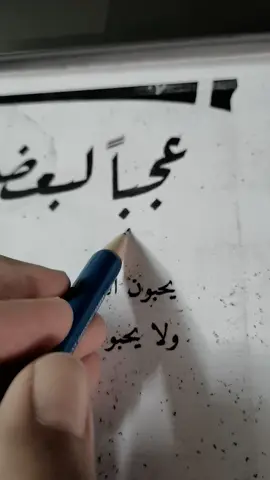 عجباً لبعض
يحبون
ولا يحبو